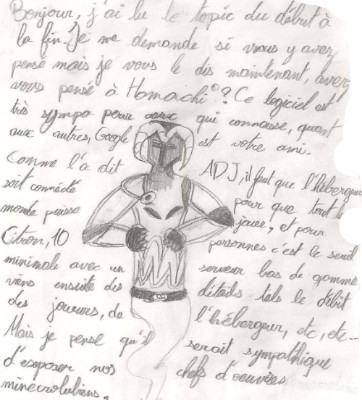 Bonjour, j'ai lu le topic du début à
la fin. Je me demande si vous y avez
pensé mais je vous le dis maintenant, avez
vous pensé à Hamachi ©? Ce logiciel est
très sympa pour ceux qui connaisse, quant
aux autres, Google est votre ami.
Comme l'a dit ADJ, il faut que l'hébergeur
soit connécté pour que tout le
monde puisse jouer, et pour
Citron, 10 personnes c'est le seuil
minimale avec un serveur bas de gamme
viens ensuite des détails tels le débit
des joueurs, de l'hébergeur, etc, etc...
Mais je pense qu'il serait sympathique
d'exposer nos chefs d'oeuvres
minecrolubiens.